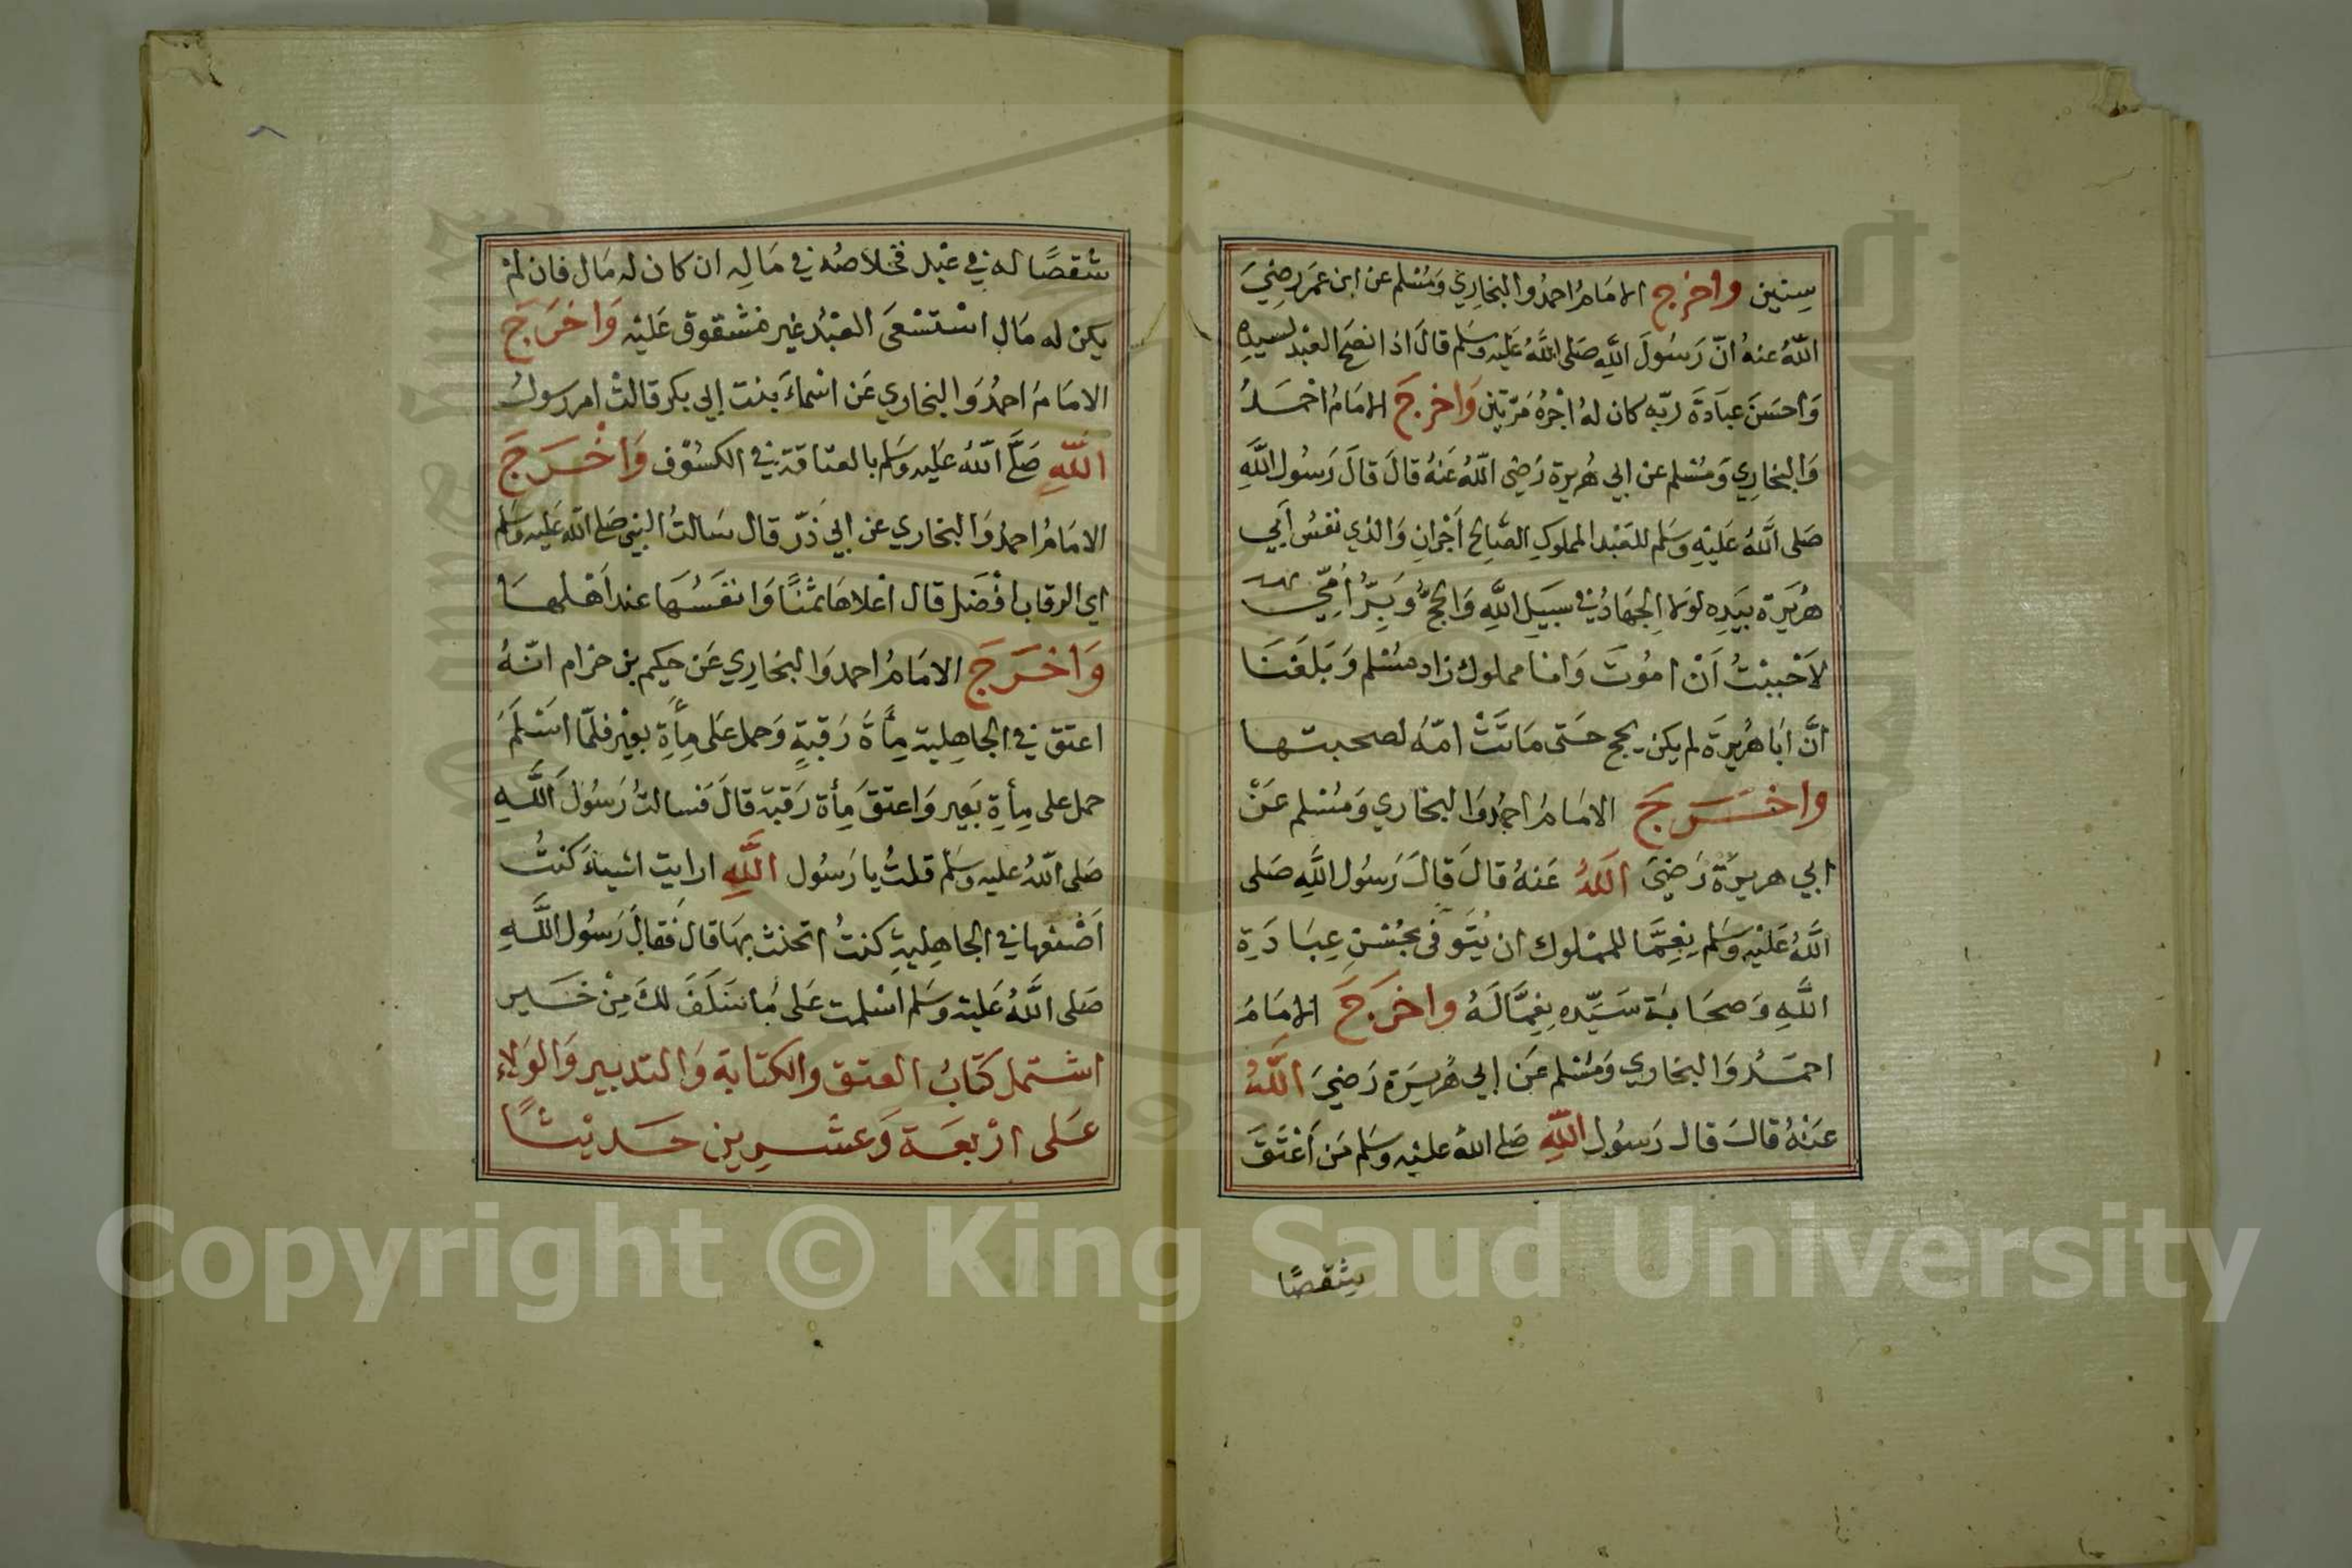 سِنين واخرج الامَامُ احمدُ والبخارِي وَمُسْلم عن ابن عمَر رضِيَ
اللّهُ عنهُ انّ رَسُولَ اللَّهِ صَلى اللَّهُ عَليْهِ وسَلم قالَ اذا نصَحَ العَبْد لسيدِه
وَاحسَنَ عبَادَةَ ربّه كان لهُ اجْرهُ مَرّتين وَاخرجَ الامَامُ احْمَدُ
وَالبخارِي وَمُسْلم عن ابي هُريرة رَضِي اللّهُ عَنهُ قالَ قالَ رَسُول اللَّهِ
صَلى اللَّهُ عَليْهِ وسَلم للعَبْد المملوكِ الصَّالح اَجْرانِ وَالذي نفسُ اَبي
هُرَيرة بيَدِه لوَلا الجهَادُ في سبيَلِ اللَّهِ وَالحجُّ وَبِرُّ اُمِّي
لاَحْببْتُ اَنْ امُوتَ وَانا مملوك زاد مسْلم وَبَلَغَنَا
انَّ ابَا هُرَيرةَ لم يكن يحج حَتى مَاتَتْ امّهُ لصحبتها
واخَرَجَ الامَامُ احمدُ وَالبخاري وَمُسْلم عَنْ
ابي هريرَة رَضيَ اللَّهُ عَنهُ قالَ قالَ رَسُول اللَّهِ صَلى
اللَّهُ عَليْهِ وسَلم نِعِمَّا للممْلوك ان يُتَوَفى بحُسْنِ عِبَادَةِ
اللَّهِ وَصحَابة سَيِّده نِعِمَّا لَهُ واخرَجَ الامَامُ
احمَدُ وَالبخاري وَمُسْلم عَن ابي هُريَرة رَضيَ اللَّهُ
عَنْهُ قالَ قال رَسُول اللَّهِ صَلى اللهُ عليْه وسَلم مَن اَعْتَقَ
شِقصًا
شقصًا له في عبْد فخلاصُه في مَالِه ان كان له مَال فان لمْ
يكن له مَال استسْعَى العَبْدُ غير مَشْقوق عَليْه وَاخرَجَ
الامَامُ احمدُ وَالبخاري عَن اسْماءَ بنت ابي بكر قالتْ امر رسولُ
اللَّهِ صَلَّى اللّهُ عَليه وسَلم بالعتاقة في الكسُوْف وَاخْرَجَ
الامَامُ احمدُ وَالبخاري عن ابي ذَرّ قال سَالتُ النبي صَلى اللّه عَليْه وسَلم
اي الرقاب افْضَل قال اعْلاهَا ثمنًا وَانفَسُهَا عند اَهْلهَا
وَاخرَجَ الامَامُ احمد وَالبخارِي عَن حكيم بن حزام انّهُ
اعتق في الجاهِلية مِأَةَ رَقبَةٍ وَحمل عَلى مِأَةِ بعيْر فلمّا اسْلَمَ
حمل على مِأَةِ بَعير وَاعتقَ مِأة رَقبة قالَ فَسالتُ رَسُول اللَّهِ
صَلى اللّهُ عليه وسَلم قلتُ يا رَسُول اللَّهِ ارايت اشياءَ كنتُ
اَصْنعها في الجاهِليةِ كنتُ اتحنث بهَا قال فَقالَ رَسُول اللَّهِ
صَلى اللَّهُ عَليْه وسَلم اسْلمت عَلى مَا سَلَفَ لكَ مِنْ خَير
اشتمل كتابُ العتق والكتابة وَالتدبير وَالوَلاءِ
عَلى ارْبعَة وَعشرِين حَديْثًا
٨
Copyright © King Saud University